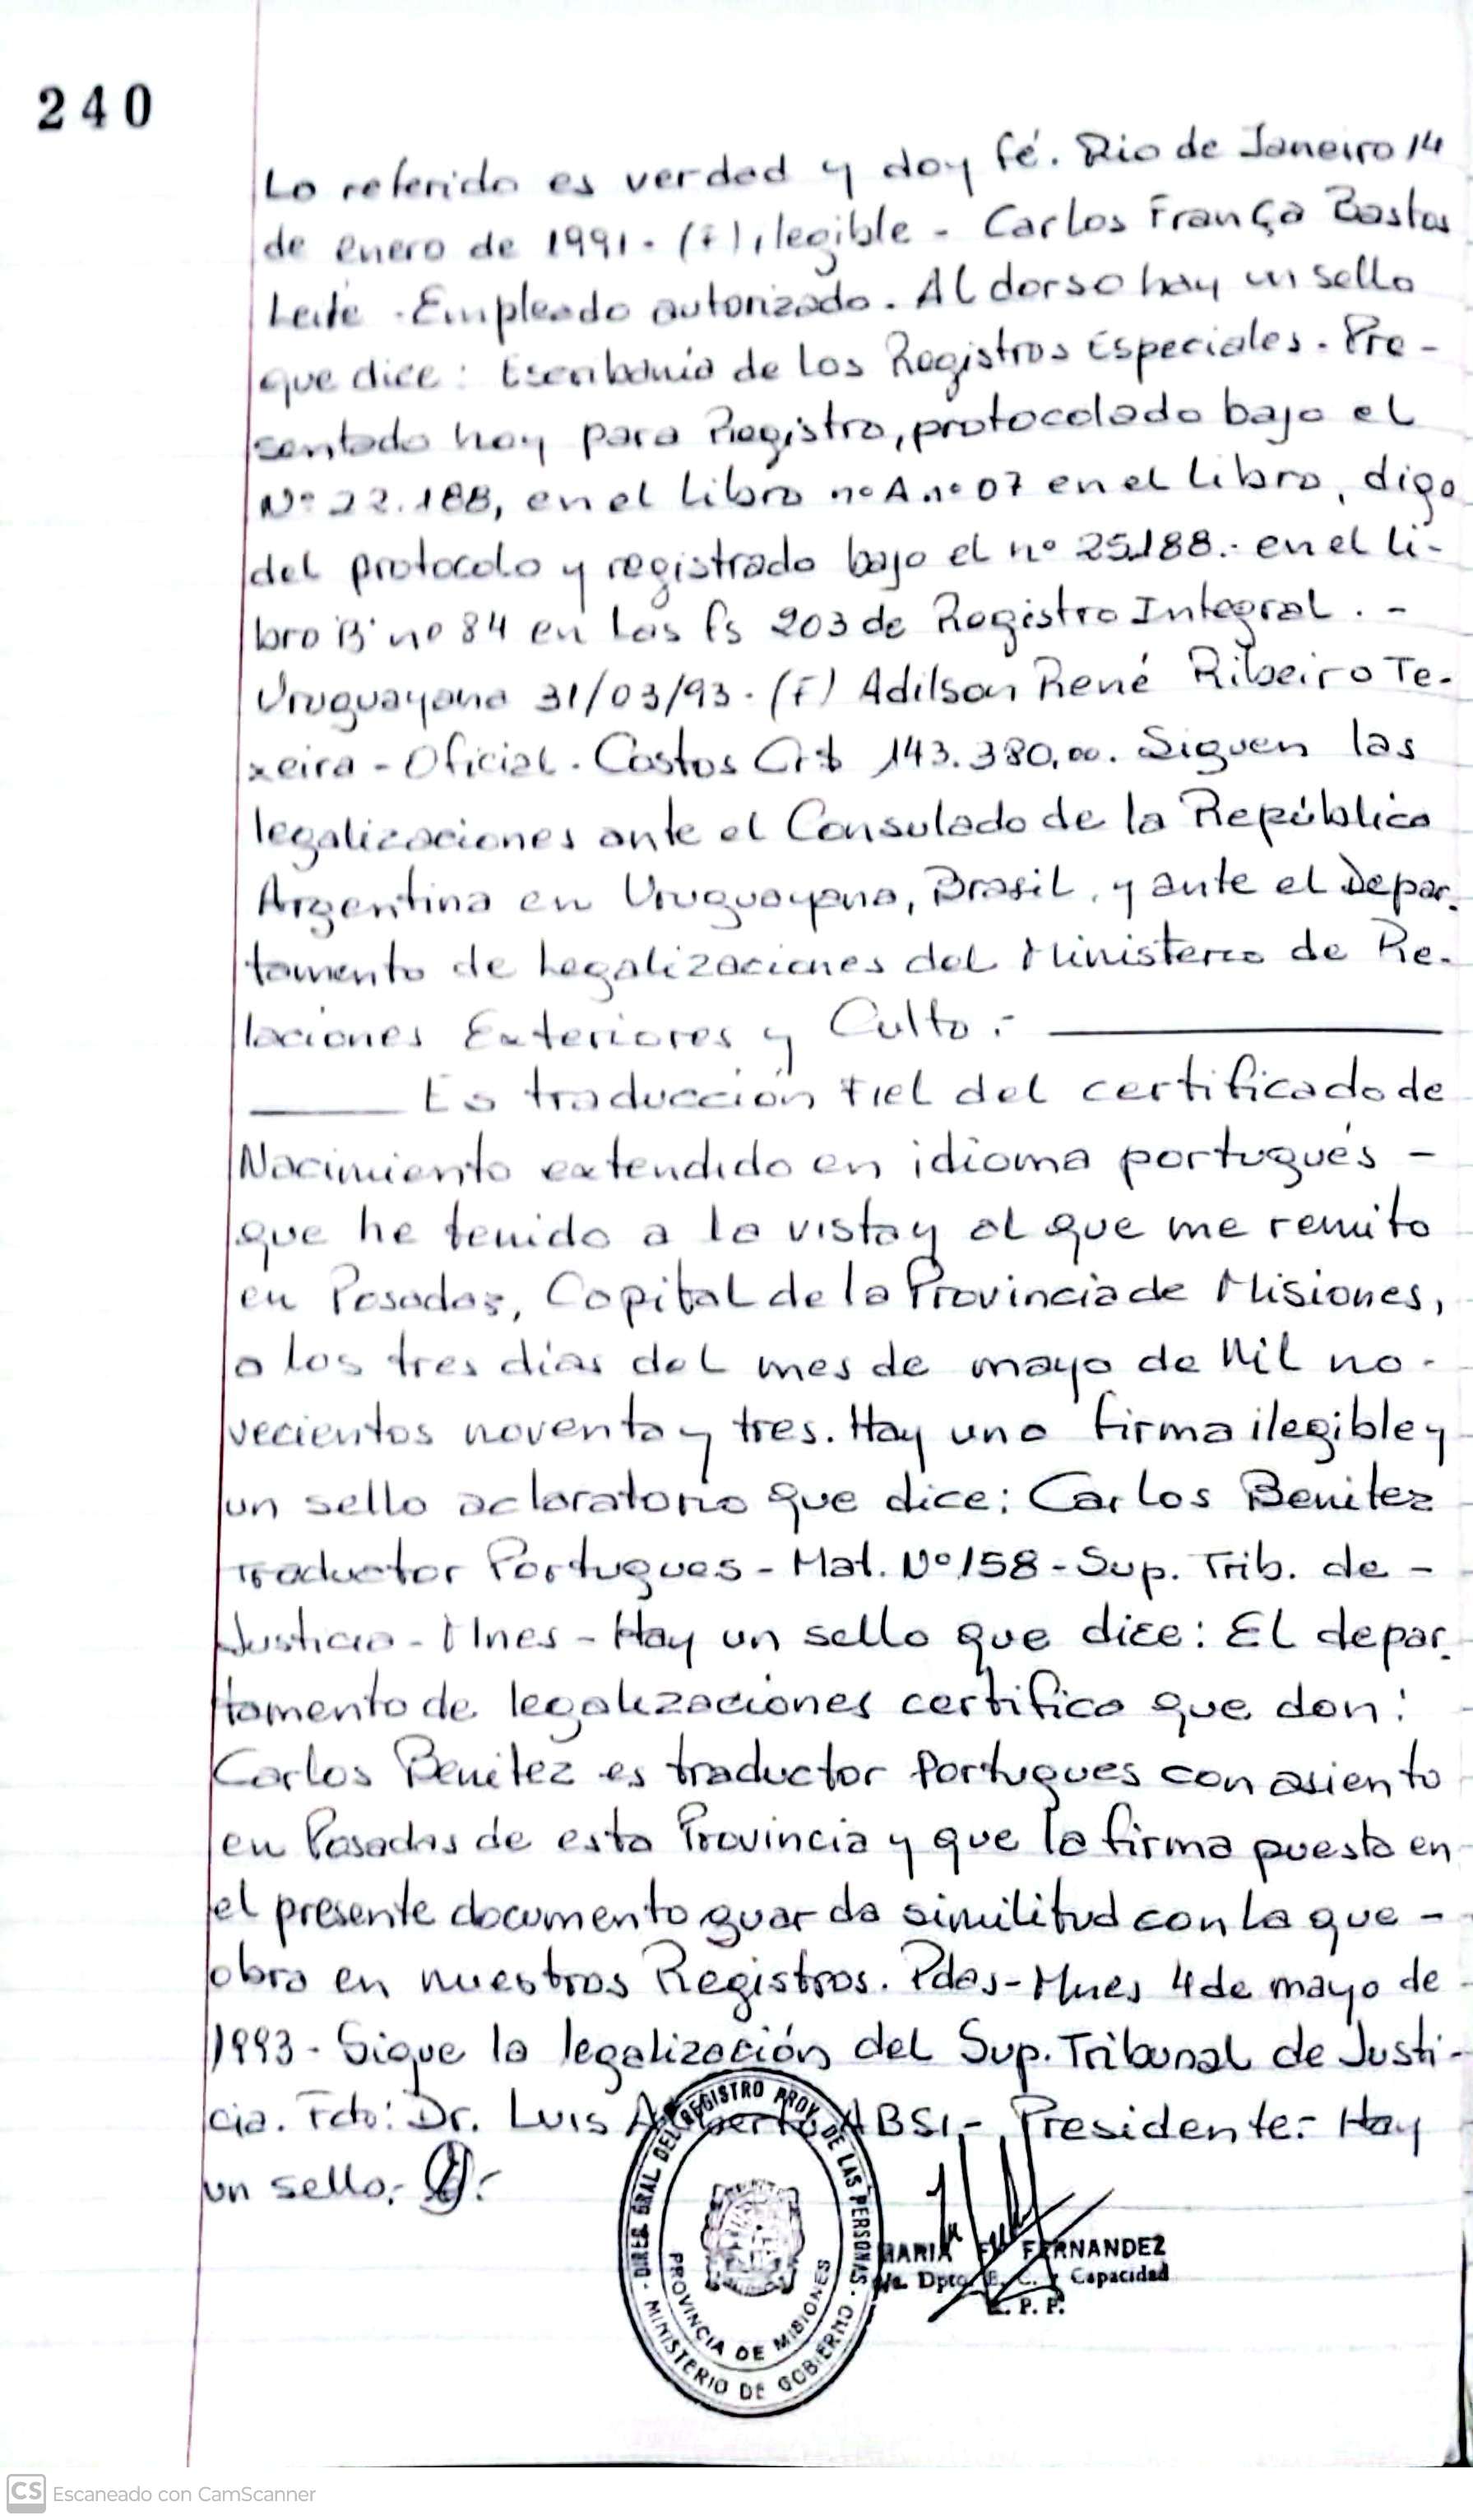 240
Lo referido es verdad y doy fé. Rio de Janeiro 14
de enero de 1991. (F) ilegible - Carlos França Bastos
Leite - Empleado autorizado. Al dorso hay un sello
que dice: Escribanía de los Registros Especiales. Pre-
sentado hoy para Registro, protocolado bajo el
Nº 22.188, en el libro nº A nº 07 en el libro, digo
del protocolo y registrado bajo el nº 25.188.- en el li-
bro B nº 84 en las fs 203 de Registro Integral. -
Uruguayana 31/03/93. (F) Adilson René Ribeiro Te-
xeira - Oficial. Costos Cr$ 143.380,00. Siguen las
legalizaciones ante el Consulado de la República
Argentina en Uruguayana, Brasil, y ante el Depar-
tamento de Legalizaciones del Ministerio de Re-
laciones Exteriores y Culto.-
Es traducción fiel del certificado de
Nacimiento extendido en idioma portugués -
que he tenido a la vista y al que me remito
en Posadas, Capital de la Provincia de Misiones,
a los tres días del mes de mayo de Mil no-
vecientos noventa y tres. Hay una firma ilegible y
un sello aclaratorio que dice: Carlos Benitez
Traductor Portugues - Mat. Nº 158 - Sup. Trib. de -
Justicia - Mnes - Hay un sello que dice: El depar-
tamento de legalizaciones certifica que don:
Carlos Benitez es traductor Portugues con asiento
en Posadas de esta Provincia y que la firma puesta en
el presente documento guarda similitud con la que -
obra en nuestros Registros. Pdas - Mnes 4 de mayo de
1993. Sigue la legalización del Sup. Tribunal de Justi-
cia. Fdo: Dr. Luis Alberto ABSI - Presidente.- Hay
un sello.-
DIREC. GRAL DEL REGISTRO PROV. DE LAS PERSONAS
MINISTERIO DE GOBIERNO
PROVINCIA DE MISIONES
MARIA FERNANDEZ
Dpto. E. C. y Capacidad
R. P. P.
CS Escaneado con CamScanner